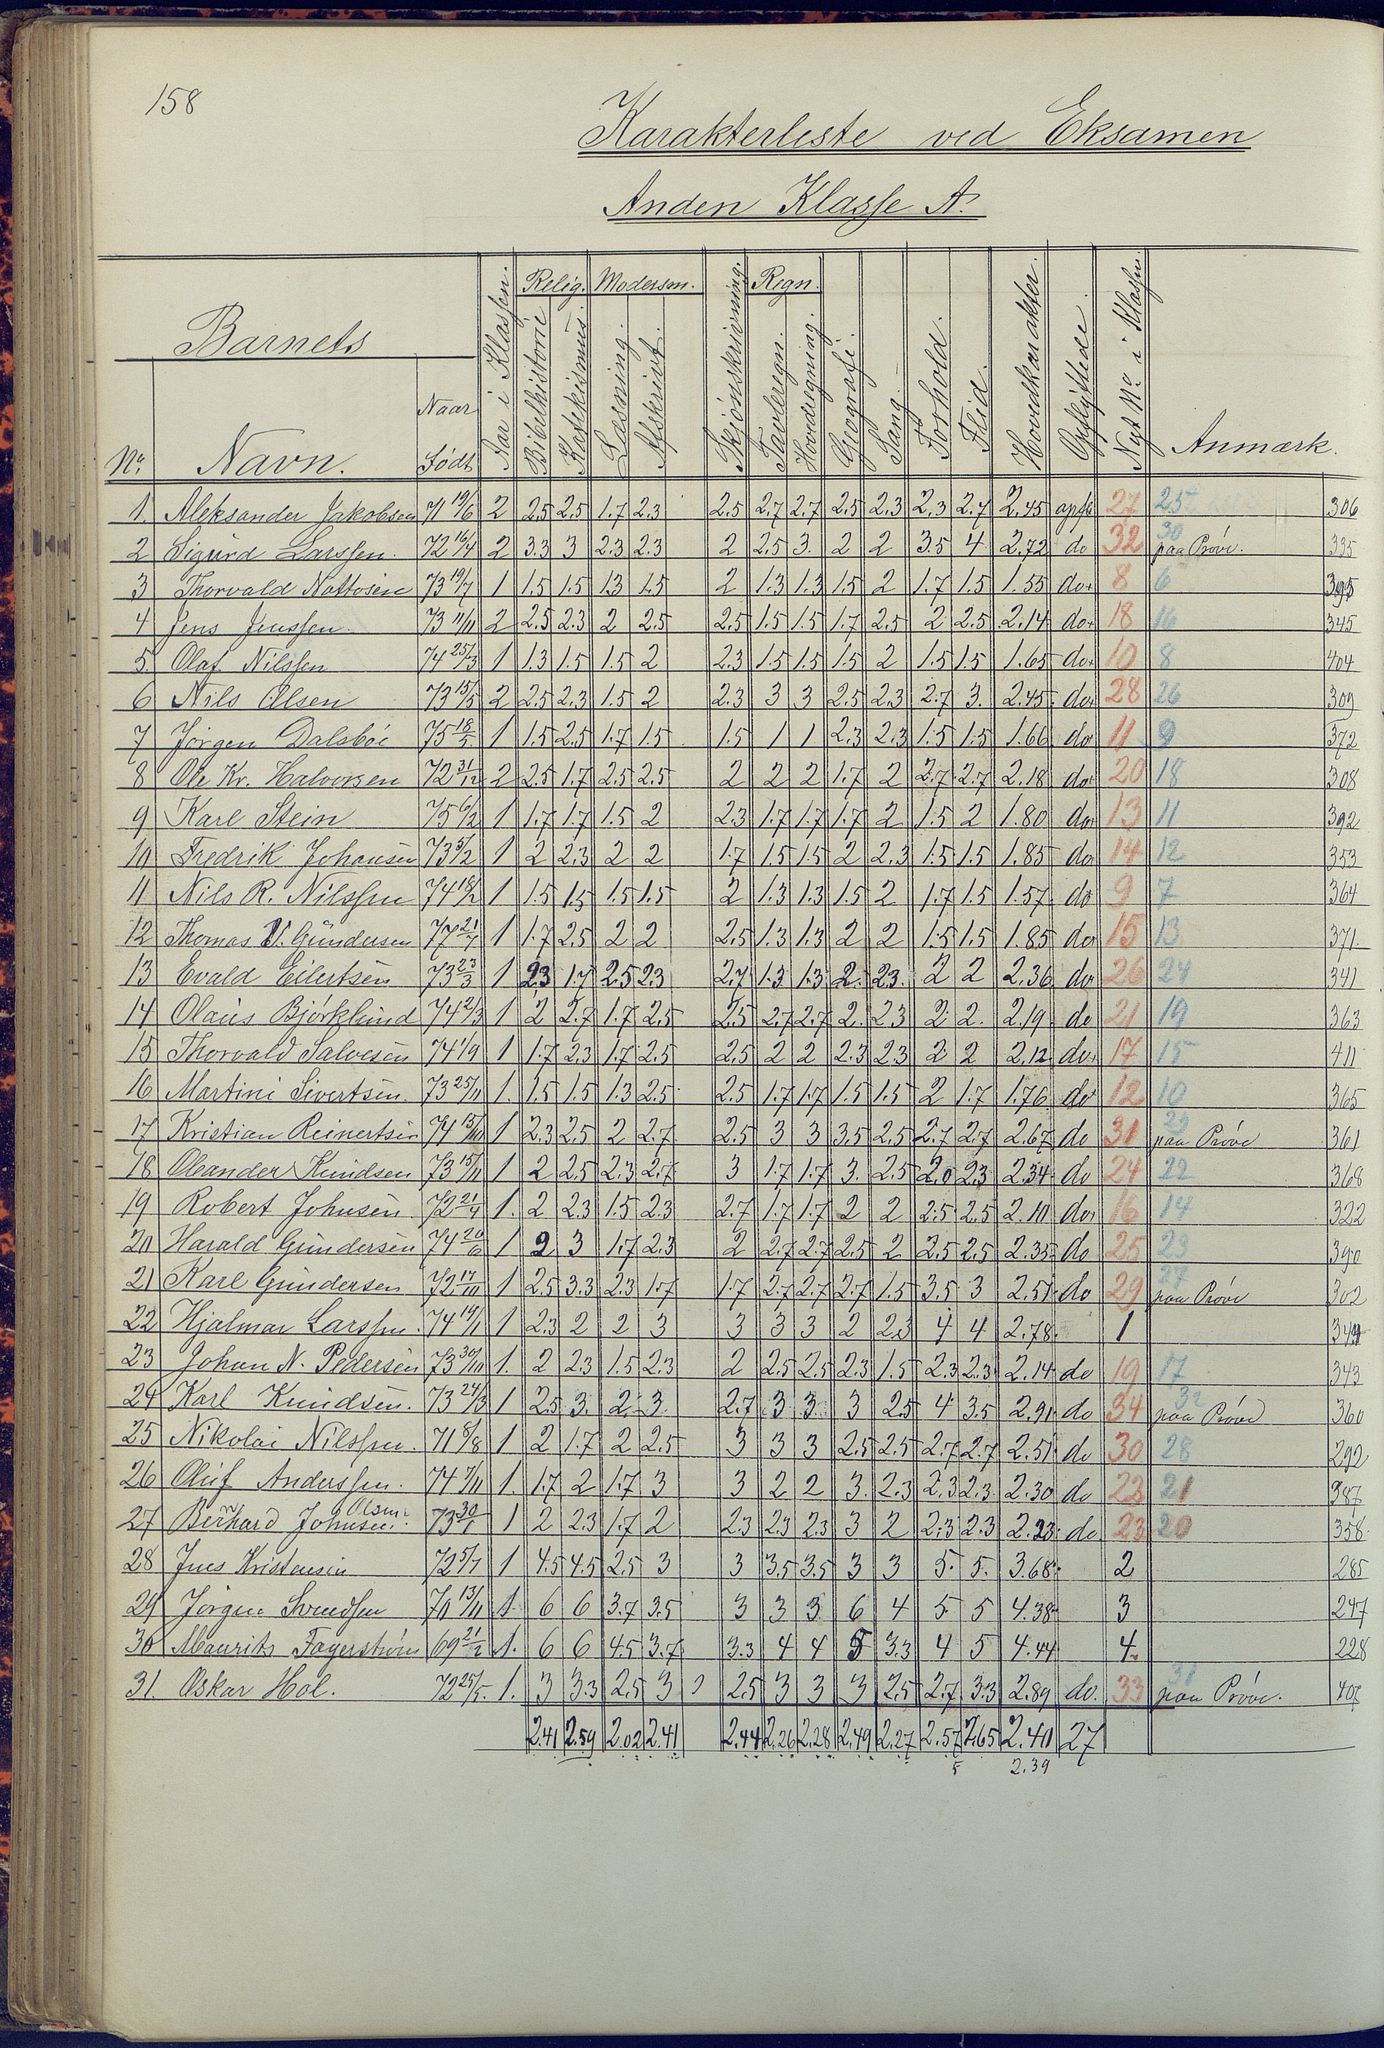 158
Karakterliste ved Eksamen
Anden Klasse A.
Barnets
No. Navn. Naar Født Aar i Klassen. Relig. Bibelhistorie Katekismus. Modersm. Læsning. Afskrivt. Skjønskrivning. Regn. Tavleregn. Hovedregning. Geografi. Sang Forhold. Flid. Hovedkarakter. Opflyttede. Nyt No. i Klassen. Anmærk.
1. Aleksander Jakobsen 71 19/6 2 2.5 2.5 1.7 2.3 2.5 2.7 2.7 2.5 2.3 2.3 2.7 2.45 opfl 27 25 306
2 Sigurd Larssen. 72 16/4 2 3.3 3 2.3 2.3 2 2.5 3. 2 2 3.5 4 2.72 do 32 30 paa Prøve. 335
3 Thorvald Nottosen 73 19/7 1 1.5 1.5 1.3 1.5 2 1.3 1.3 1.5 2 1.7 1.5 1.55 do 8 6 395
4 Jens Jenssen. 73 11/11 2 2.5 2.3 2 2.5 2.5 1.5 1.5 1.7 2.5 2 2.5 2.14 do 18 16 345
5. Olaf Nilssen 74 25/3 1 1.3 1.5 1.5 2 2.3 1.5 1.5 1.5 2 1.5 1.5 1.65 do 10 8 404
6 Nils Olsen 73 15/5 2 2.5 2.3 1.5 2 2.3 3 3 2.5 2.3 2.7 3. 2.45 do 28 26 309
7 Jørgen Dalsbøe 75 18/5 1 1.5 2.5 1.7 1.5 1.5 1 1 2.3 2.3 1.5 1.5 1.66 do 11 9 372
8 Ole Kr. Halvorsen 72 31/12 2 2.5 1.7 2.5 2.5 2 2 2 1.7 2 2.7 2.7 2.18 do 20 18 308
9 Karl Stein 75 6/2 1 1.7 1.7 1.5 2 2.3 1.7 1.7 1.7 2 1.5 2 1.80 do 13 11 392
10 Fredrik Johansen 73 5/2 1 2 2.3 2 2 1.7 1.5 1.5 2 2.3 1.5 1.5 1.85 do 14 12 353
11 Nils R. Nilssen 74 18/2 1 1.5 1.5 1.5 1.5 2 1.3 1.3 1.5 2 1.7 1.5 1.57 do 9 7 364
12 Thomas V. Gundersen 77 21/7 1 1.7 2.5 2 2 2.5 1.3 1.3 2 2 1.5 1.5 1.85 do 15 13 371.
13 Evald Eilertsen 73 23/3 1 2.3 1.7 2.5 2.3 2.7 1.3 1.3 2. 2.3. 2 2 2.36 do 26 24 341
14 Olaus Bjørklund 74 2/3 1 2 2.7 1.7 2.5 2.5 2.7 2.7 2. 2.3 2. 2. 2.19. do 21 19 363
15 Thorvald Salvesen 74 1/9 1 1.7 2.3 1.7 2.5 2.5 2 2 2.3 2.3 2 2 2.12. do 17 15 411
16 Martini Sivertsen. 73 25/11 1. 1.5 1.5 1.3 2.5 2.5 1.7 1.7 1.5 1.5 2 1.7 1.76 do 12 10 365
17 Kristian Reinertsen 74 15/10 1. 2.3 2.5 2 2.7 2.5 3 3 3.5 2.5 2.7 2.7 2.67 do 31 29 paa Prøve 361
18 Oleander Knudsen 73 15/11 1 2 2.5 2.3 2.7 3 1.7 1.7 3. 2.5 2.0 2.3 2.34 do 24 22 368
19 Robert Johnsen 72 21/4 1. 2 2.3 1.5 2.3 2.7 1.7 1.7 2 2 2.5 2.5 2.10 do 16 14 322
20 Harald Gundersen 74 20/6 1 2 3 1.7 2.3 2 2.7 2.7 2.5 2 2.5 2.5 2.35 do 25 23 390
21 Karl Gundersen 72 17/10 1 2.5 3.3 2.3 1.7 1.7 2.7 2.7 2.7 1.5 3.5 3 2.51 do 29 27 paa Prøve 302
22 Hjalmar Larssen. 74 19/1 1 2.3 2 2 3 3 3 3 2 2.3 4 4 2.78. 1 349
23 Johan N. Pedersen 73 30/10 1. 2 2.3 1.5 2.3 2 2.5 2.5 2.3 1.5 2.3 2.3 2.14 do 19 17 343
24 Karl Knudsen. 73 24/3 1 2.5 3. 2. 3. 2.7 3 3. 3 2.5 4 3.5 2.91 do 34 32 paa Prøve 360
25 Nikolai Nilssen. 71 8/8 1 2 1.7 2 2.5 3 3 3 2.5 2.5 2.7 2.7 2.51 do 30 28 292
26 Oluf Anderssen. 74 7/11 1. 1.7 2 1.7 3 3 2 2 3. 2.3 2.3 2.3 2.30 do 23 21 387
27 Bernhard Johnsen. Olsen 73 30/1 1 2 2.3 1.7 2 2.3 2.3 2.3 3 2 2.3 2.3 2.23 do. 23 20 358
28 Jens Kristensen 72 5/7 1 4.5 4.5 2.5 3 3 3.5 3.5 3 3 5. 5. 3.68 2 285
29 Jørgen Svendsen 70 13/11 1. 6 6 3.7 3.5 3 3 3 6 4 5. 5 4.38 3 247
30 Maurits Fagerstrøm 69 21/2 1. 6 6 4.5 3.7 3.3 4 4 5 3.3 4 5 4.44 4. 228
31. Oskar Hol. 72 25/5. 1. 3 3.3 2.5 3 2.5 3 3 3 2.5 2.7 3.3 2.89 do. 33 31 paa Prøve. 407
2.41 2.59 2.02 2.41 2.44 2.26 2.28 2.49 2.27 2.57 2.65 2.40 27
5 2.39